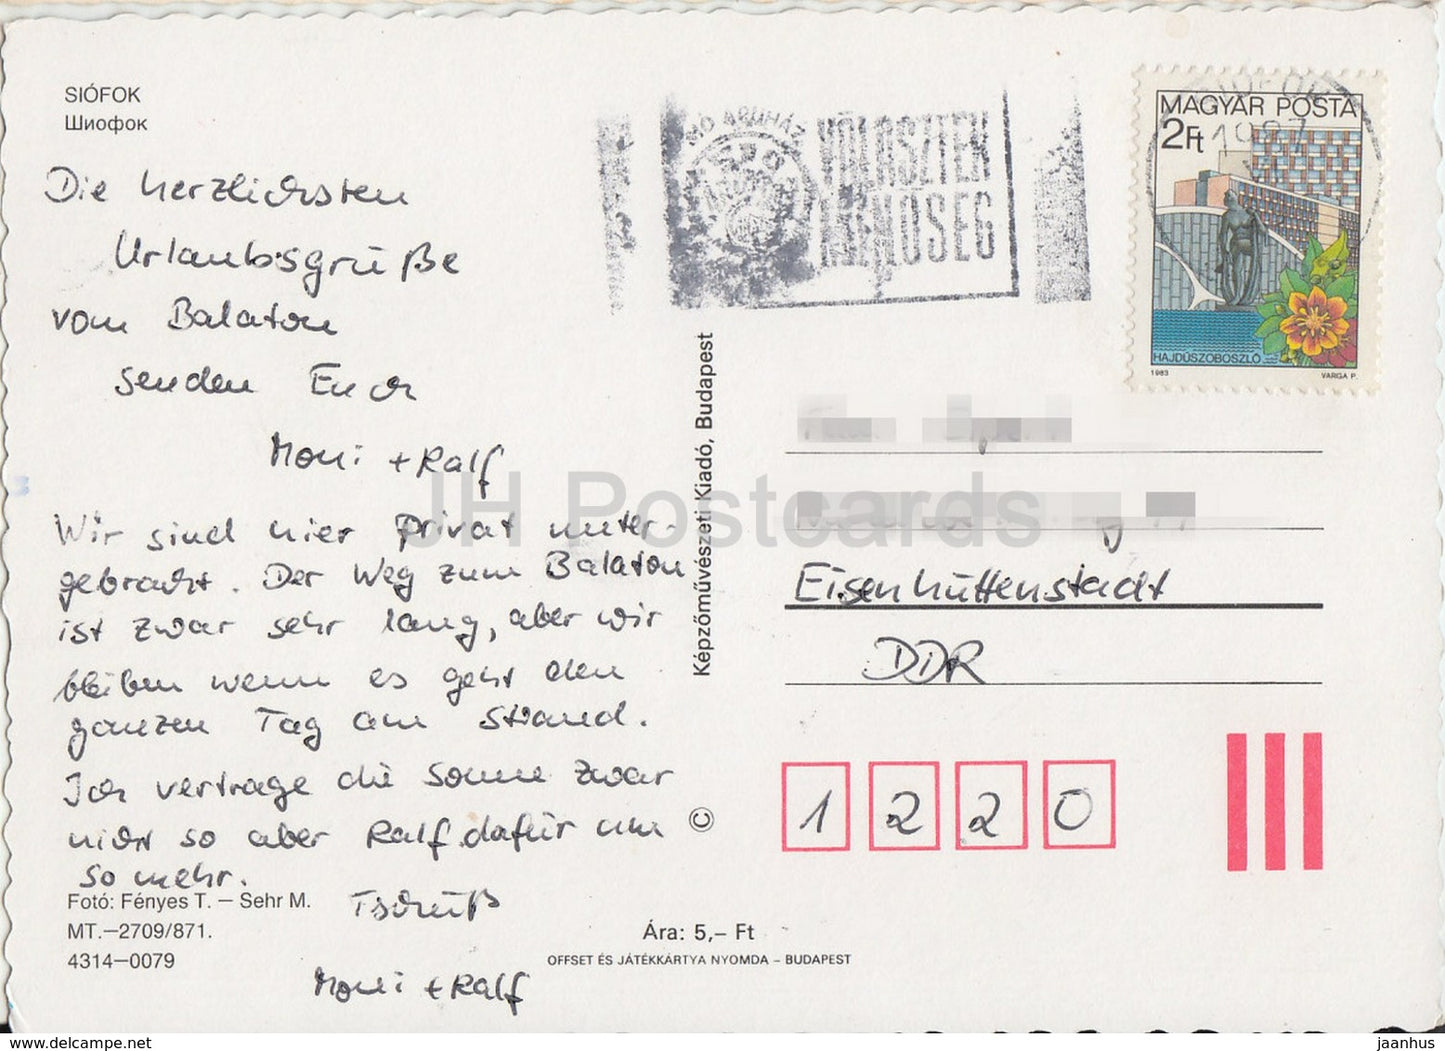 SIÓFOK
Шиофок
Die herzlichsten
Urlaubsgrüße
vom Balaton
senden Euch
Moni + Ralf
Wir sind hier privat unter-
gebracht. Der Weg zum Balaton
ist zwar sehr lang, aber wir
bleiben wenn es geht den
ganzen Tag am Strand.
Ich vertrage die Sonne zwar
nicht so aber Ralf dafür um
so mehr.
Tschüß
Moni + Ralf
Fotó: Fényes T. – Sehr M.
MT.–2709/871.
4314–0079
Ára: 5,– Ft
OFFSET ÉS JÁTÉKKÁRTYA NYOMDA – BUDAPEST
Képzőművészeti Kiadó, Budapest
©
ÁRUHÁZ
VÁLASZTÉK
MINŐSÉG
MAGYAR POSTA
2Ft
1987
HAJDÚSZOBOSZLÓ
1983 VARGA P.
Eisenhüttenstadt
DDR
1 2 2 0
JH Postcards
www.delcampe.net
jaanhus